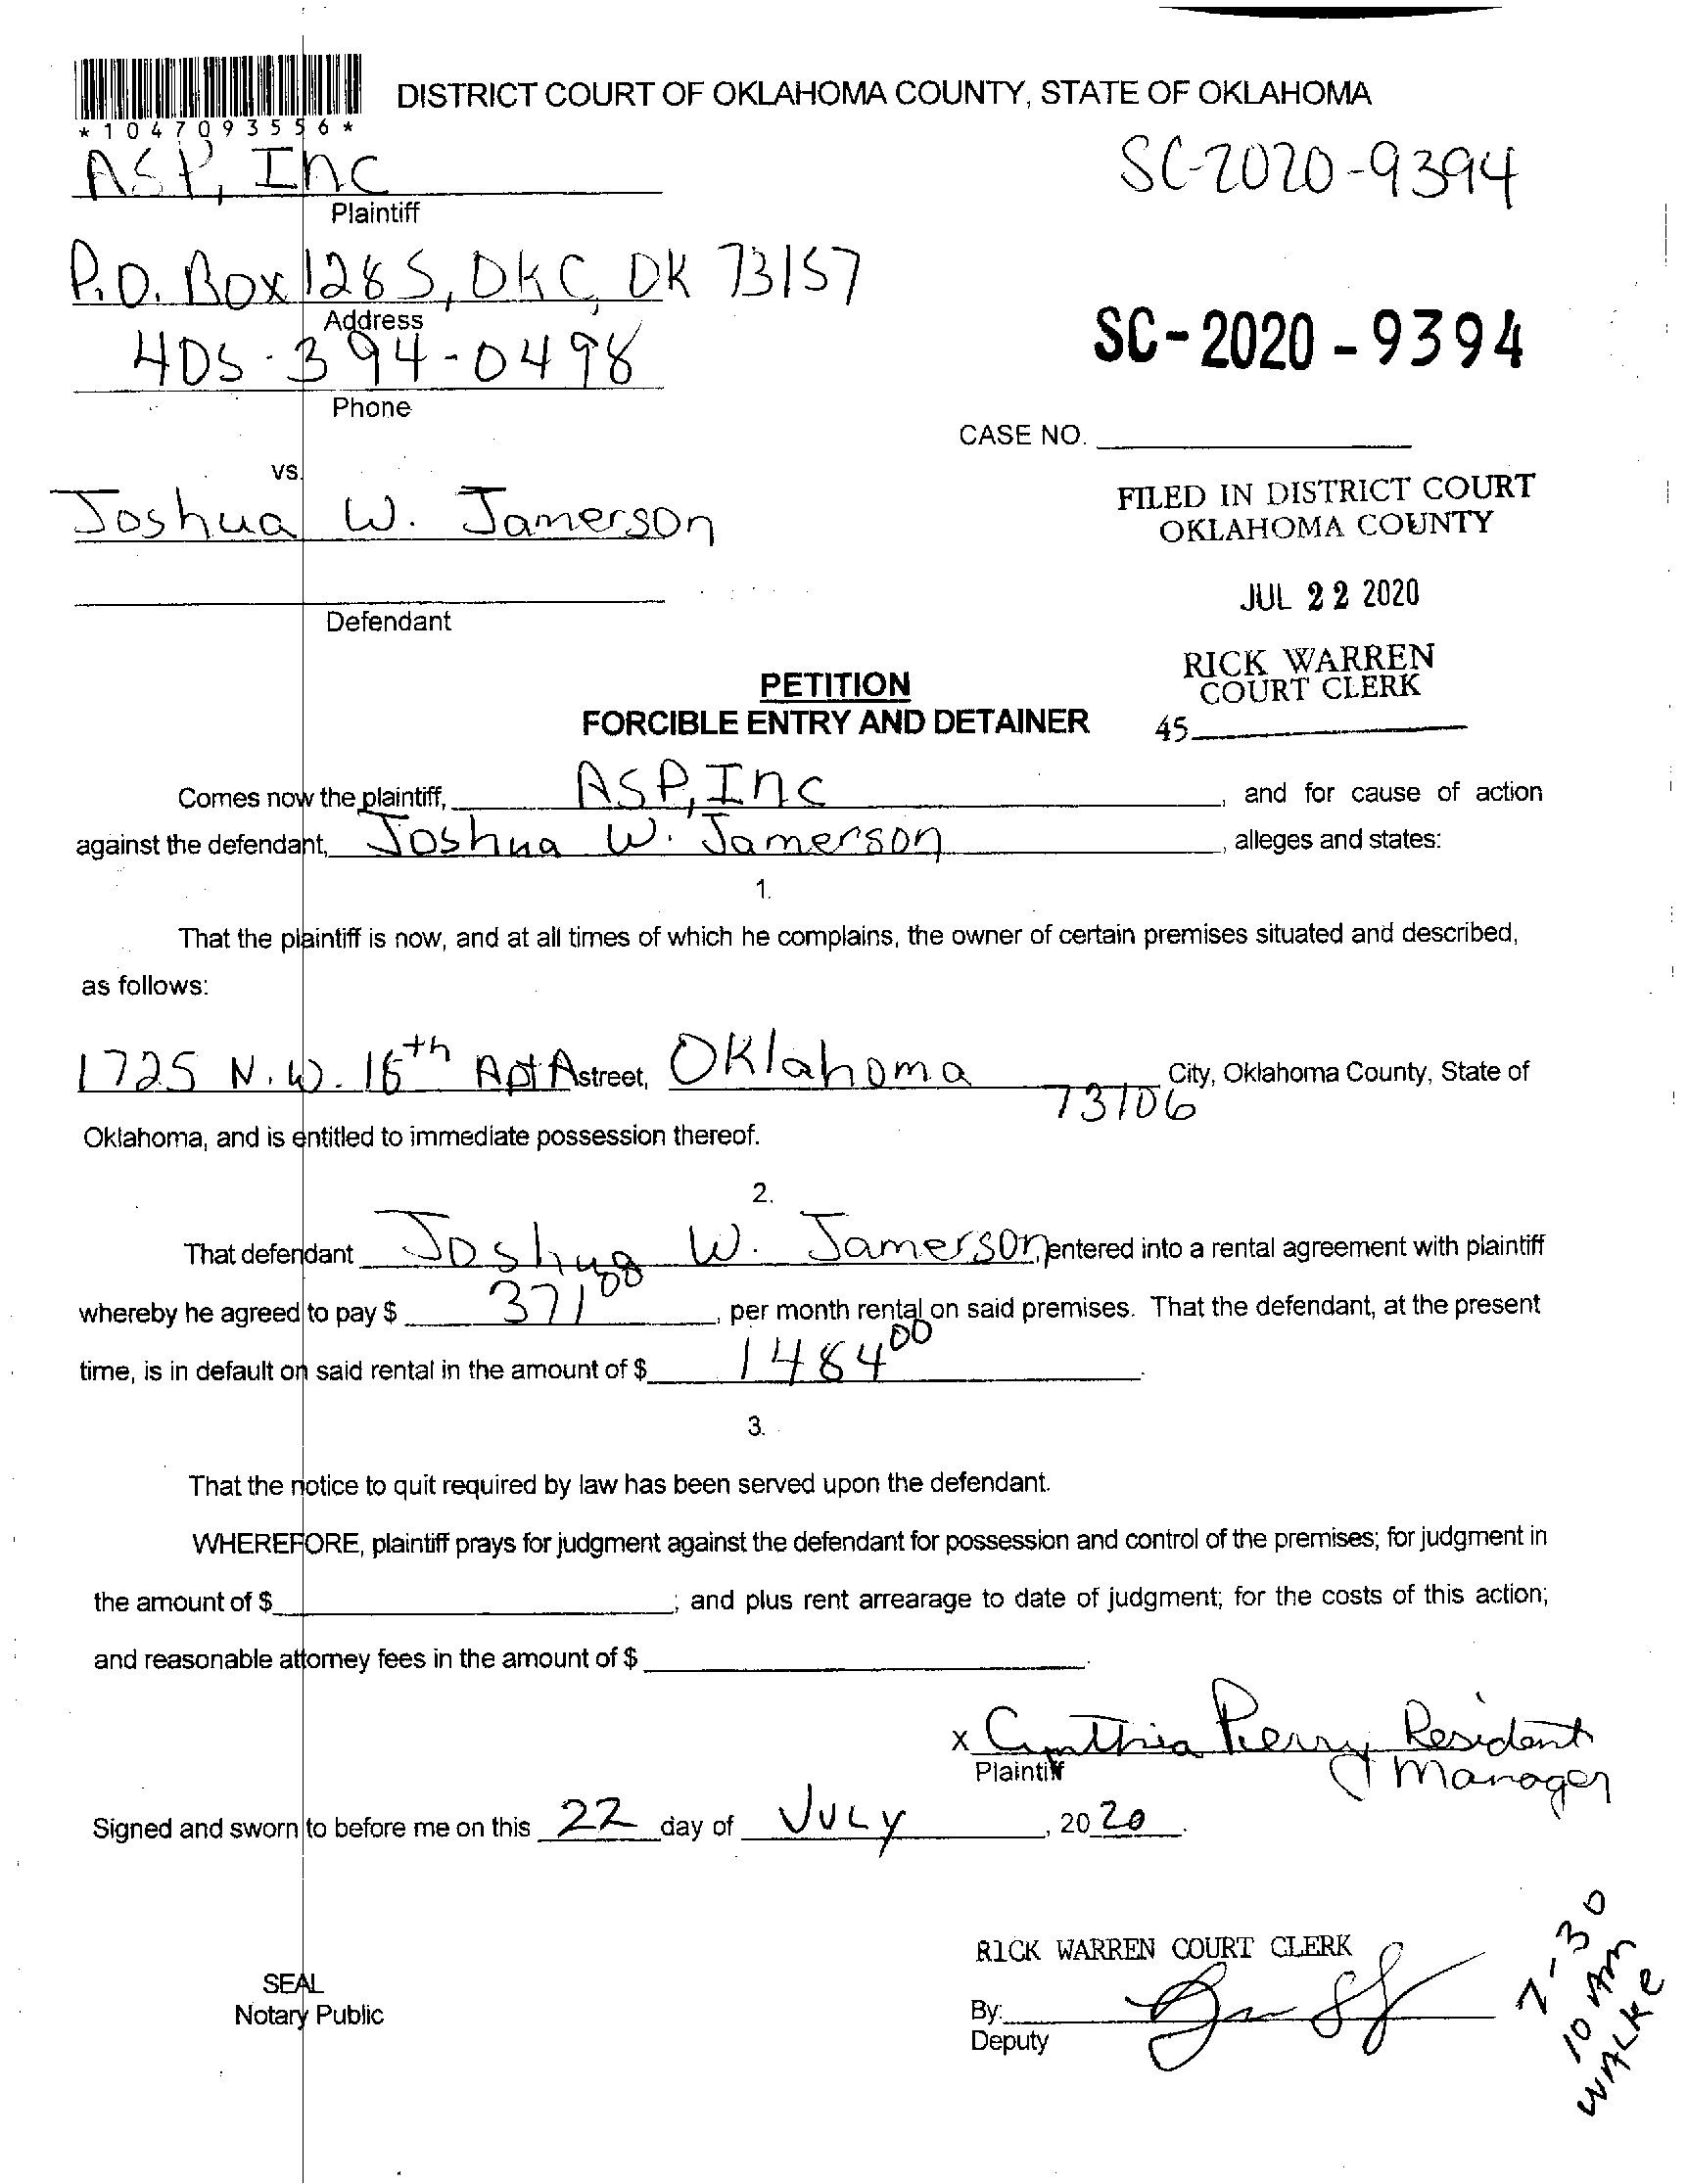 DISTRICT COURT OF OKLAHOMA COUNTY, STATE OF OKLAHOMA
*1047093556*
ASP, Inc
SC-2020-9394
Plaintiff
P.O. Box 1285, OKC, OK 73157
Address
SC-2020-9394
405-394-0498
Phone
CASE NO.
vs.
Joshua W. Jamerson
FILED IN DISTRICT COURT
OKLAHOMA COUNTY
JUL 22 2020
Defendant
RICK WARREN
COURT CLERK
45
PETITION
FORCIBLE ENTRY AND DETAINER
Comes now the plaintiff, ASP, Inc, and for cause of action
against the defendant, Joshua W. Jamerson, alleges and states:
1.
That the plaintiff is now, and at all times of which he complains, the owner of certain premises situated and described,
as follows:
1725 N.W. 16th Apt A street, Oklahoma City, Oklahoma County, State of
73106
Oklahoma, and is entitled to immediate possession thereof.
2.
That defendant Joshua W. Jamerson, entered into a rental agreement with plaintiff
whereby he agreed to pay $ 371 00, per month rental on said premises. That the defendant, at the present
time, is in default on said rental in the amount of $ 1484 00.
3.
That the notice to quit required by law has been served upon the defendant.
WHEREFORE, plaintiff prays for judgment against the defendant for possession and control of the premises; for judgment in
the amount of $ ; and plus rent arrearage to date of judgment; for the costs of this action;
and reasonable attorney fees in the amount of $ .
x Cynthia Perry Resident
Plaintiff
Manager
Signed and sworn to before me on this 22 day of JULY, 2020.
RICK WARREN COURT CLERK
SEAL
Notary Public
By:
Deputy
7-30
10 AM
WALKE